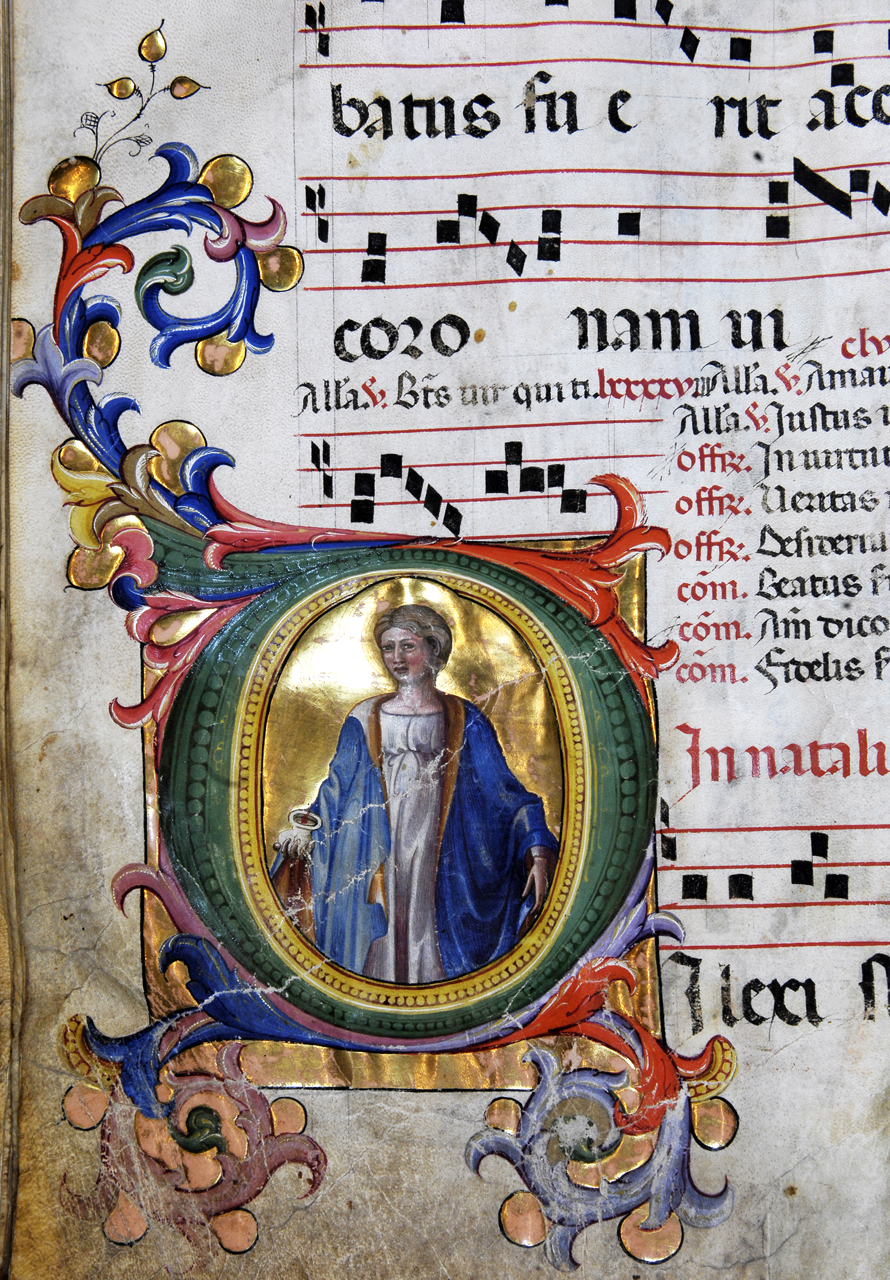 batus fu e rit acci
coro nam ui
Alla. V. Bts uir qui ti. lxxxxviii Alla. V. Amau
Alla. V. Justus
offr. In uirtut
offr. Ueritas
offr. Desideriu
com. Beatus
com. Am dico
com. Fidelis
In natali
Ilexi